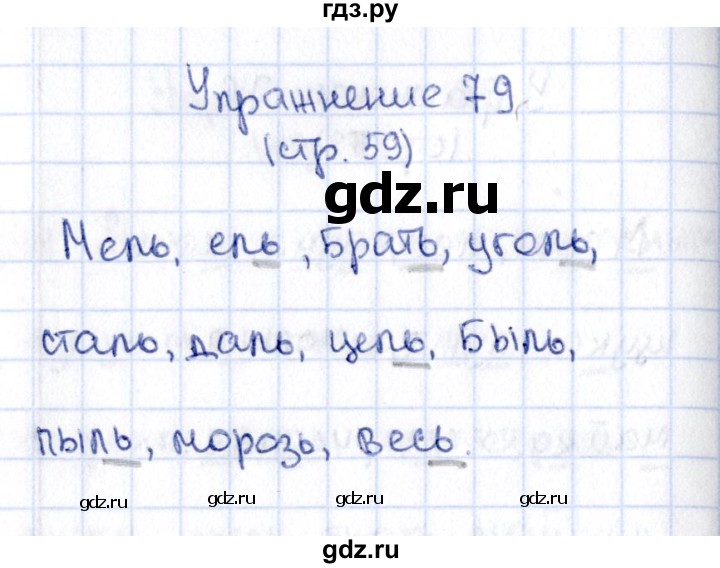 гдз.ру
Упражнение 79
(стр. 59)
gdz.ru
Мель, ель, Брать, уголь,
сталь, даль, цепь, Быль,
пыль, морозь, весь.
gdz.ru gdz.ru gdz.ru gdz.ru
gdz.ru